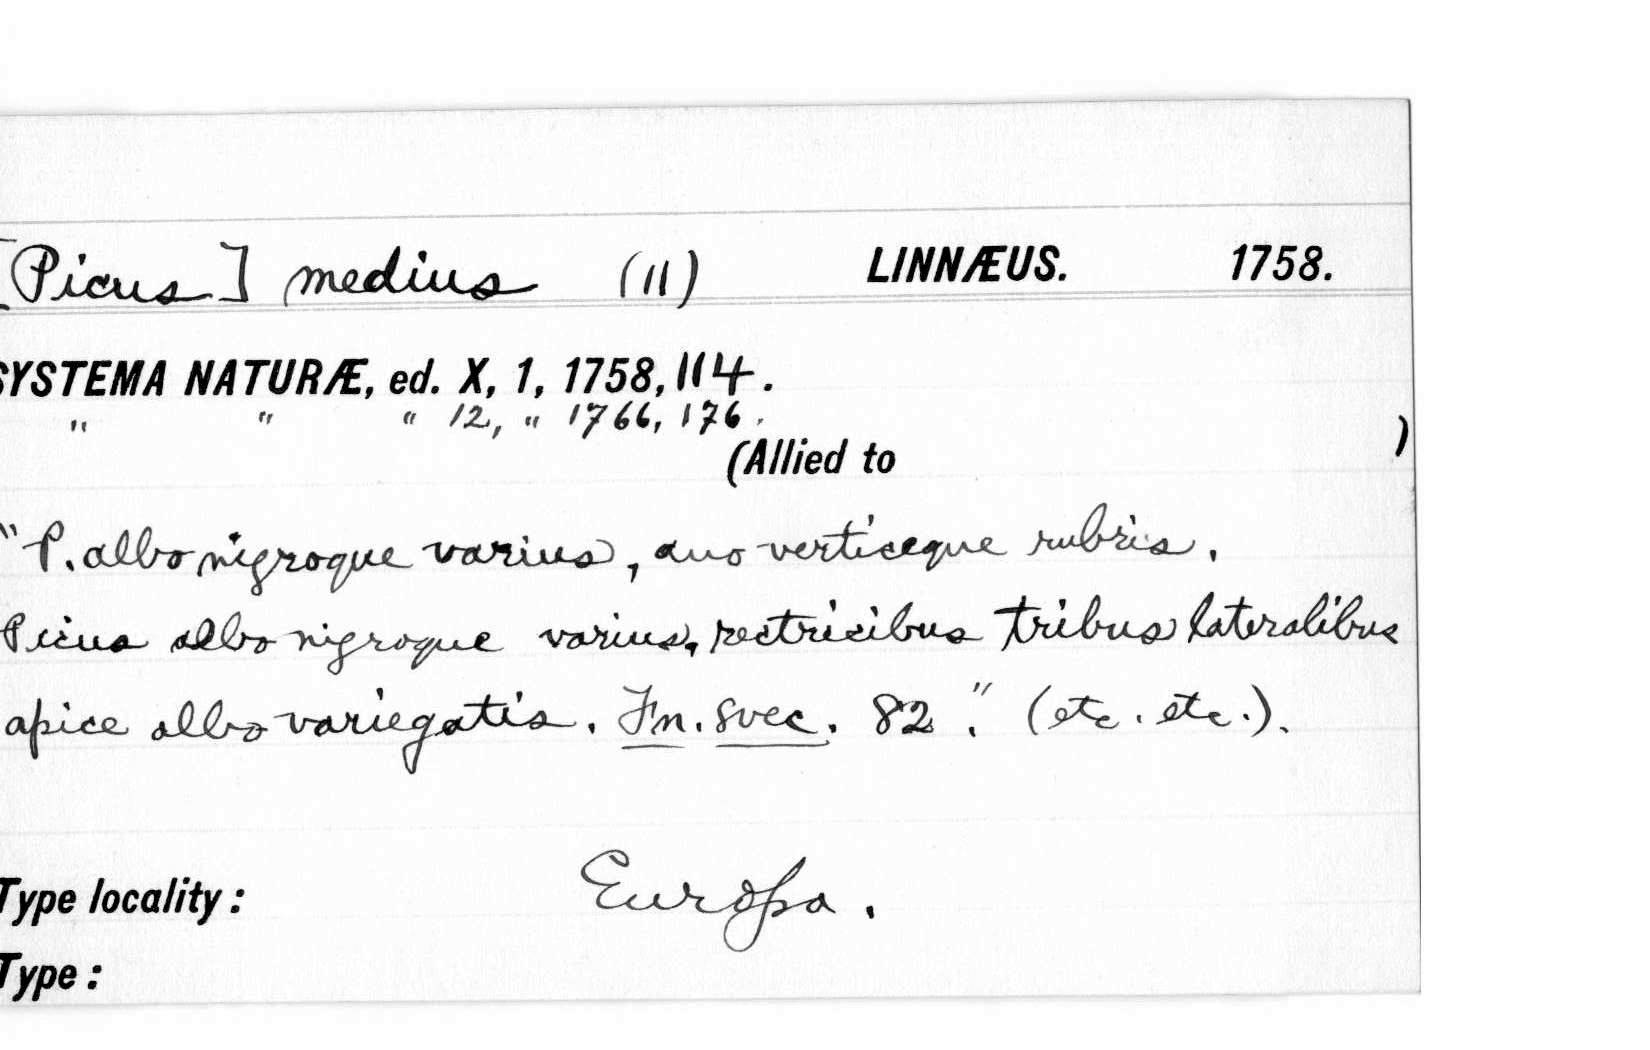 [Picus] medius (11) LINNÆUS. 1758.
SYSTEMA NATURÆ, ed. X, 1, 1758, 114.
" " " 12, " 1766, 176.
(Allied to )
"P. albo nigroque varius, ano verticeque rubris.
Picus albo nigroque varius, rectricibus tribus lateralibus
apice albo variegatis. Fn. svec. 82." (etc. etc.).
Type locality: Europa.
Type: